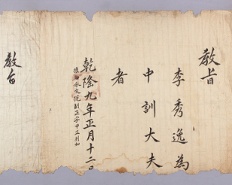 敎旨
李秀逸為
中訓大夫
者
乾隆九年正月十二日
敎旨